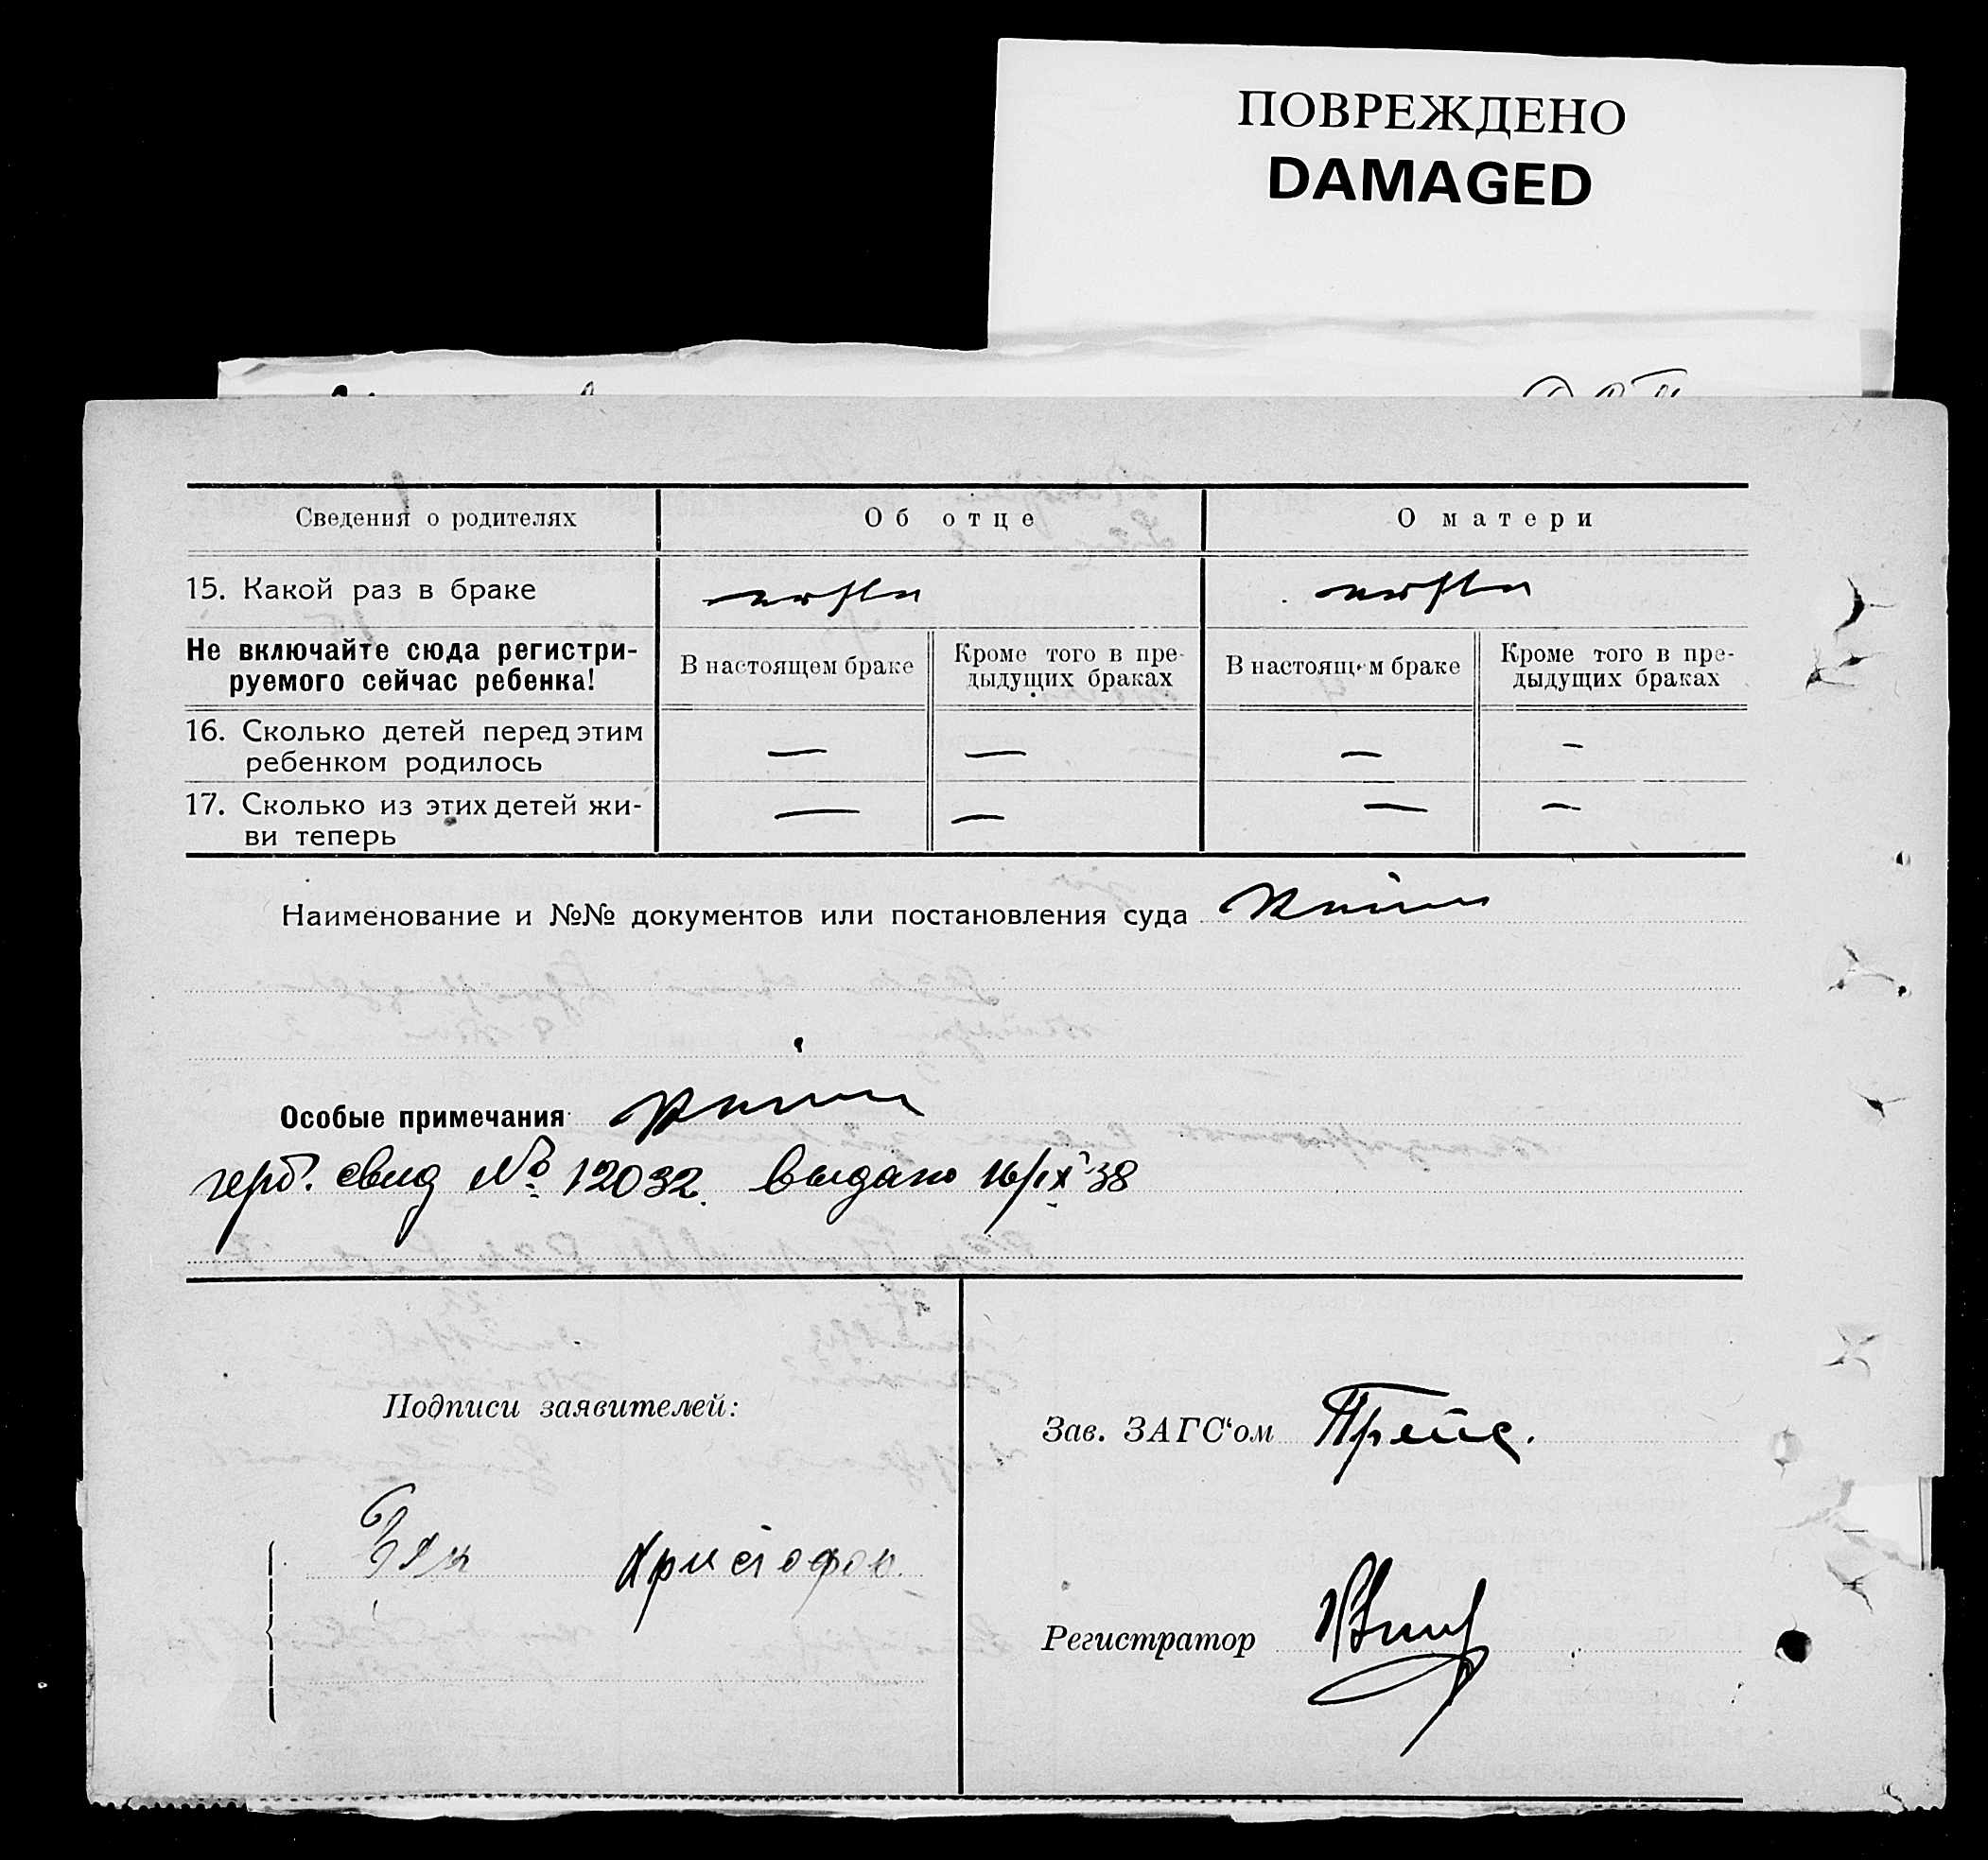 ПОВРЕЖДЕНО
DAMAGED
Сведения о родителях
Об отце
О матери
15. Какой раз в браке
Не включайте сюда регистри-
руемого сейчас ребенка!
В настоящем браке
Кроме того в пре-
дыдущих браках
В настоящем браке
Кроме того в пре-
дыдущих браках
16. Сколько детей перед этим
ребенком родилось
— — — —
17. Сколько из этих детей жи-
ви теперь
— — — —
Наименование и №№ документов или постановления суда
Особые примечания
герб. свид № 12032. выдано 16/IX 38
Подписи заявителей:
Зав. ЗАГС‘ом Прейс.
Регистратор